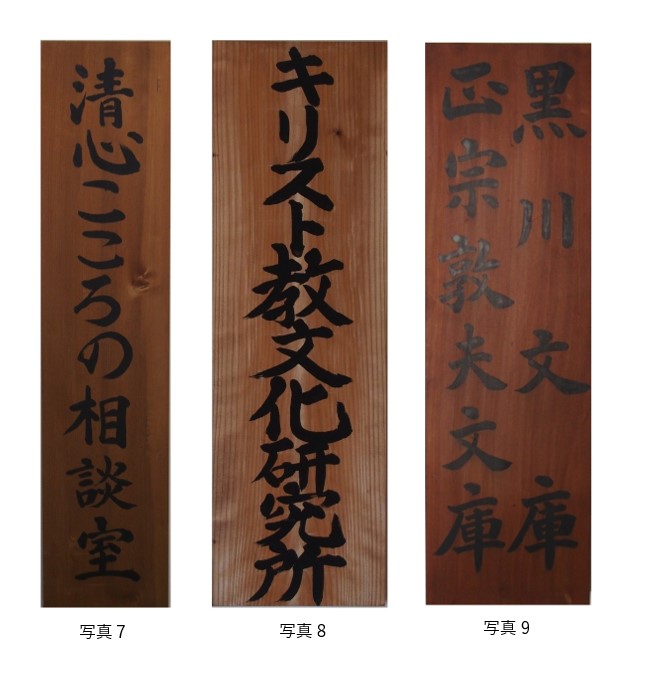 清心こころの相談室
キリスト教文化研究所
黒川文庫
正宗敦夫文庫
写真7
写真8
写真9